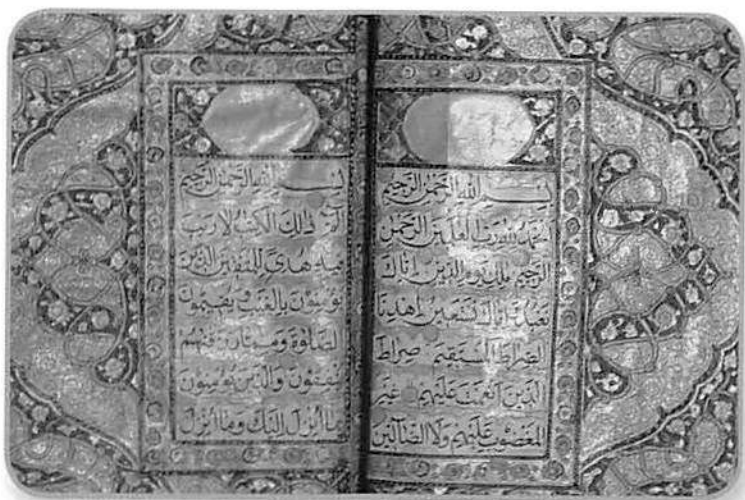 بسم الله الرحمن الرحيم
الحمد لله رب العلمين الرحمن
الرحيم ملك يوم الدين اياك
نعبد و اياك نستعين اهدنا
الصراط المستقيم صراط
الذين انعمت عليهم غير
المغضوب عليهم ولا الضالين
بسم الله الرحمن الرحيم
الم ذالك الكتب لا ريب
فيه هدى للمتقين الذين
يؤمنون بالغيب و يقيمون
الصلوة ومما رزقنهم
ينفقون والذين يؤمنون
بما انزل اليك وما انزل